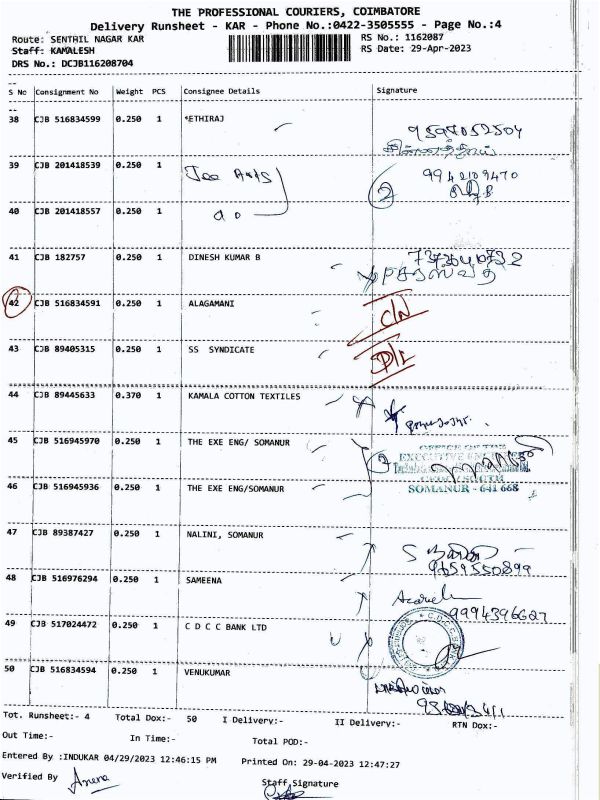 THE PROFESSIONAL COURIERS, COIMBATORE
Delivery Runsheet - KAR - Phone No.:0422-3505555 - Page No.:4
Route: SENTHIL NAGAR KAR RS No.: 1162087
Staff: KAMALESH RS Date: 29-Apr-2023
DRS No.: DCJB116208704
S No Consignment No Weight PCS Consignee Details Signature
38 CJB 516834599 0.250 1 ETHIRAJ
39 CJB 201418539 0.250 1 9942109470
40 CJB 201418557 0.250 1 do
41 CJB 182757 0.250 1 DINESH KUMAR B
42 CJB 516834591 0.250 1 ALAGAMANI C/N
43 CJB 89405315 0.250 1 SS SYNDICATE D/L
44 CJB 89445633 0.370 1 KAMALA COTTON TEXTILES
45 CJB 516945970 0.250 1 THE EXE ENG/ SOMANUR
OFFICE OF THE
46 CJB 516945936 0.250 1 THE EXE ENG/SOMANUR SOMANUR - 641 668
47 CJB 89387427 0.250 1 NALINI, SOMANUR 9659550899
48 CJB 516976294 0.250 1 SAMEENA 9994396627
49 CJB 517024472 0.250 1 C D C C BANK LTD
50 CJB 516834594 0.250 1 VENUKUMAR
Tot. Runsheet:- 4 Total Dox:- 50 I Delivery:- II Delivery:- RTN Dox:-
Out Time:- In Time:- Total POD:-
Entered By :INDUKAR 04/29/2023 12:46:15 PM Printed On: 29-04-2023 12:47:27
Verified By Staff Signature